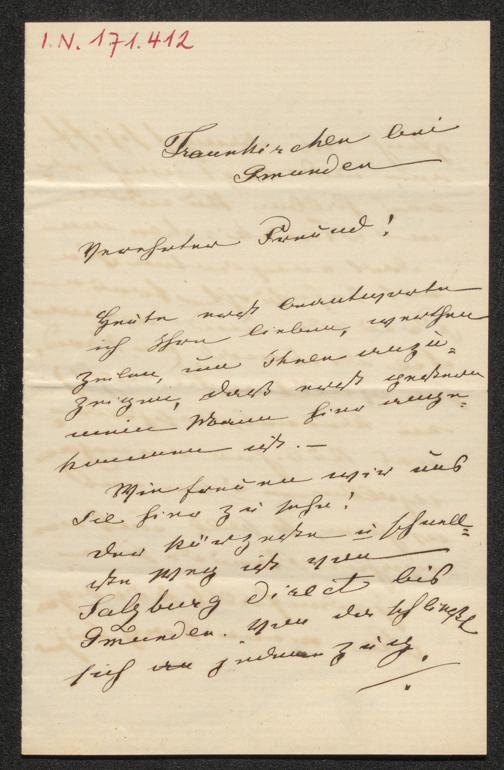 I.N. 171.412
Traunkirchen bei
Gmunden
Verehrter Freund!
Heute erst beantworte
ich Ihre lieben, werthen
Zeilen, um Ihnen anzu-
zeigen, daß erst gestern
mein Mann hier ange-
kommen ist. —
Wie freuen wir uns
Sie hier zu sehn!
der kürzeste u schnell-
ste Weg ist von
Salzburg direct bis
Gmunden. von da schließt
sich an jeden Zug.